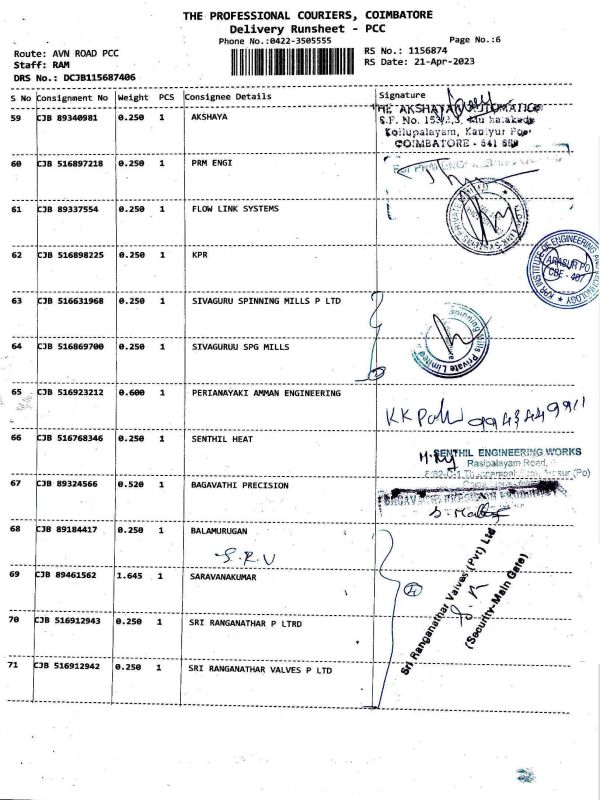 THE PROFESSIONAL COURIERS, COIMBATORE
Delivery Runsheet - PCC
Phone No.:0422-3505555
Page No.:6
Route: AVN ROAD PCC
Staff: RAM
DRS No.: DCJB115687406
RS No.: 1156874
RS Date: 21-Apr-2023
S No Consignment No Weight PCS Consignee Details Signature
59 CJB 89340981 0.250 1 AKSHAYA
THE AKSHAYA AUTOMATICS
S.F. No.
Kollupalayam, Kaniyur Post
COIMBATORE - 641 659
60 CJB 516897218 0.250 1 PRM ENGI
61 CJB 89337554 0.250 1 FLOW LINK SYSTEMS
FLOW LINK SYSTEMS PRIVATE LIMITED
62 CJB 516898225 0.250 1 KPR
KPR INSTITUTE OF ENGINEERING AND TECHNOLOGY
ARASUR PO
CBE - 407
63 CJB 516631968 0.250 1 SIVAGURU SPINNING MILLS P LTD
64 CJB 516869700 0.250 1 SIVAGURUU SPG MILLS
Spinning Mills Private Limited
65 CJB 516923212 0.600 1 PERIANAYKI AMMAN ENGINEERING
66 CJB 516768346 0.250 1 SENTHIL HEAT
SENTHIL ENGINEERING WORKS
Rasipalayam Road,
67 CJB 89324566 0.520 1 BAGAVATHI PRECISION
BAGAVATHI PRECISION
68 CJB 89184417 0.250 1 BALAMURUGAN
S.R.V
69 CJB 89461562 1.645 1 SARAVANAKUMAR
4
Sri Ranganathar Valves (Pvt) Ltd
(Security-Main Gate)
70 CJB 516912943 0.250 1 SRI RANGANATHAR P LTRD
71 CJB 516912942 0.250 1 SRI RANGANATHAR VALVES P LTD